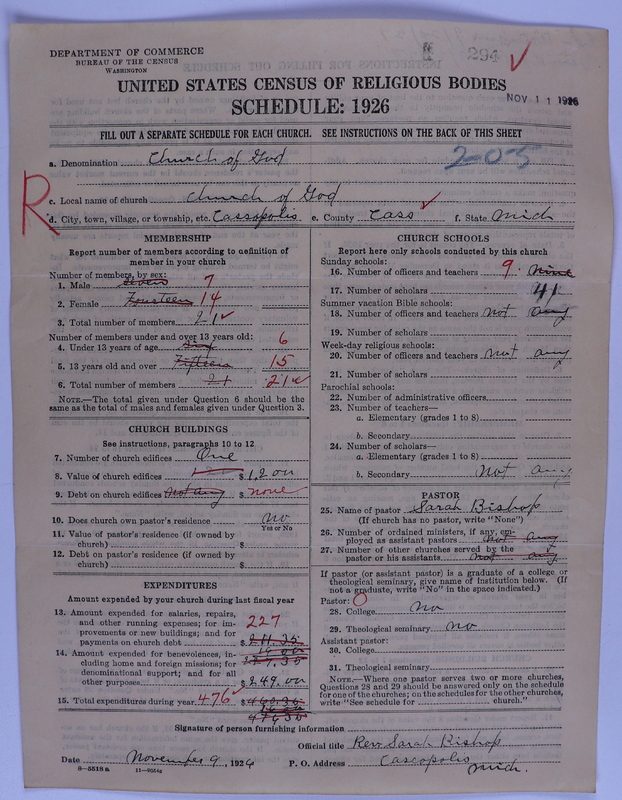 DEPARTMENT OF COMMERCE
BUREAU OF THE CENSUS
WASHINGTON
294
UNITED STATES CENSUS OF RELIGIOUS BODIES
SCHEDULE: 1926
NOV 11 1926
FILL OUT A SEPARATE SCHEDULE FOR EACH CHURCH. SEE INSTRUCTIONS ON THE BACK OF THIS SHEET
a. Denomination Church of God
205
R
c. Local name of church Church of God
d. City, town, village, or township, etc. Cassopolis e. County Cass f. State Mich
MEMBERSHIP
Report number of members according to definition of
member in your church
Number of members, by sex:
1. Male Seven 7
2. Female Fourteen 14
3. Total number of members 21
Number of members under and over 13 years old:
4. Under 13 years of age Six 6
5. 13 years old and over Fifteen 15
6. Total number of members 21 21
NOTE.—The total given under Question 6 should be
same as the total of males and females given under Question 3.
CHURCH BUILDINGS
See instructions, paragraphs 10 to 12
7. Number of church edifices One
8. Value of church edifices $ 1,200
9. Debt on church edifices not any $ none
10. Does church own pastor's residence no
Yes or No
11. Value of pastor's residence (if owned by
church) $
12. Debt on pastor's residence (if owned by
church) $
EXPENDITURES
Amount expended by your church during last fiscal year
13. Amount expended for salaries, repairs,
and other running expenses; for im-
provements or new buildings; and for
payments on church debt $ 211.35
227
14. Amount expended for benevolences, in-
cluding home and foreign missions; for
denominational support; and for all
other purposes $ 249.00
15. Total expenditures during year 476 $ 460.35
476.35
CHURCH SCHOOLS
Report here only schools conducted by this church
Sunday schools:
16. Number of officers and teachers 9 nine
17. Number of scholars 41
Summer vacation Bible schools:
18. Number of officers and teachers not any
19. Number of scholars
Week-day religious schools:
20. Number of officers and teachers not any
21. Number of scholars
Parochial schools:
22. Number of administrative officers
23. Number of teachers—
a. Elementary (grades 1 to 8)
b. Secondary
24. Number of scholars—
a. Elementary (grades 1 to 8)
b. Secondary Not any
PASTOR
25. Name of pastor Sarah Bishop
(If church has no pastor, write "None")
26. Number of ordained ministers, if any, em-
ployed as assistant pastors Not any
27. Number of other churches served by the
pastor or his assistants Not any
If pastor (or assistant pastor) is a graduate of a college or
theological seminary, give name of institution below. (If
not a graduate, write "No" in the space indicated.)
Pastor: 0
28. College no
29. Theological seminary no
Assistant pastor:
30. College
31. Theological seminary
NOTE.—Where one pastor serves two or more churches,
Questions 28 and 29 should be answered only on the schedule
for one of the churches; on the schedules for the other churches,
write "See schedule for church."
Signature of person furnishing information
Official title Rev. Sarah Bishop
Date November 9, 1926 P. O. Address Cassopolis
Mich.
8—5518a 11—9054a